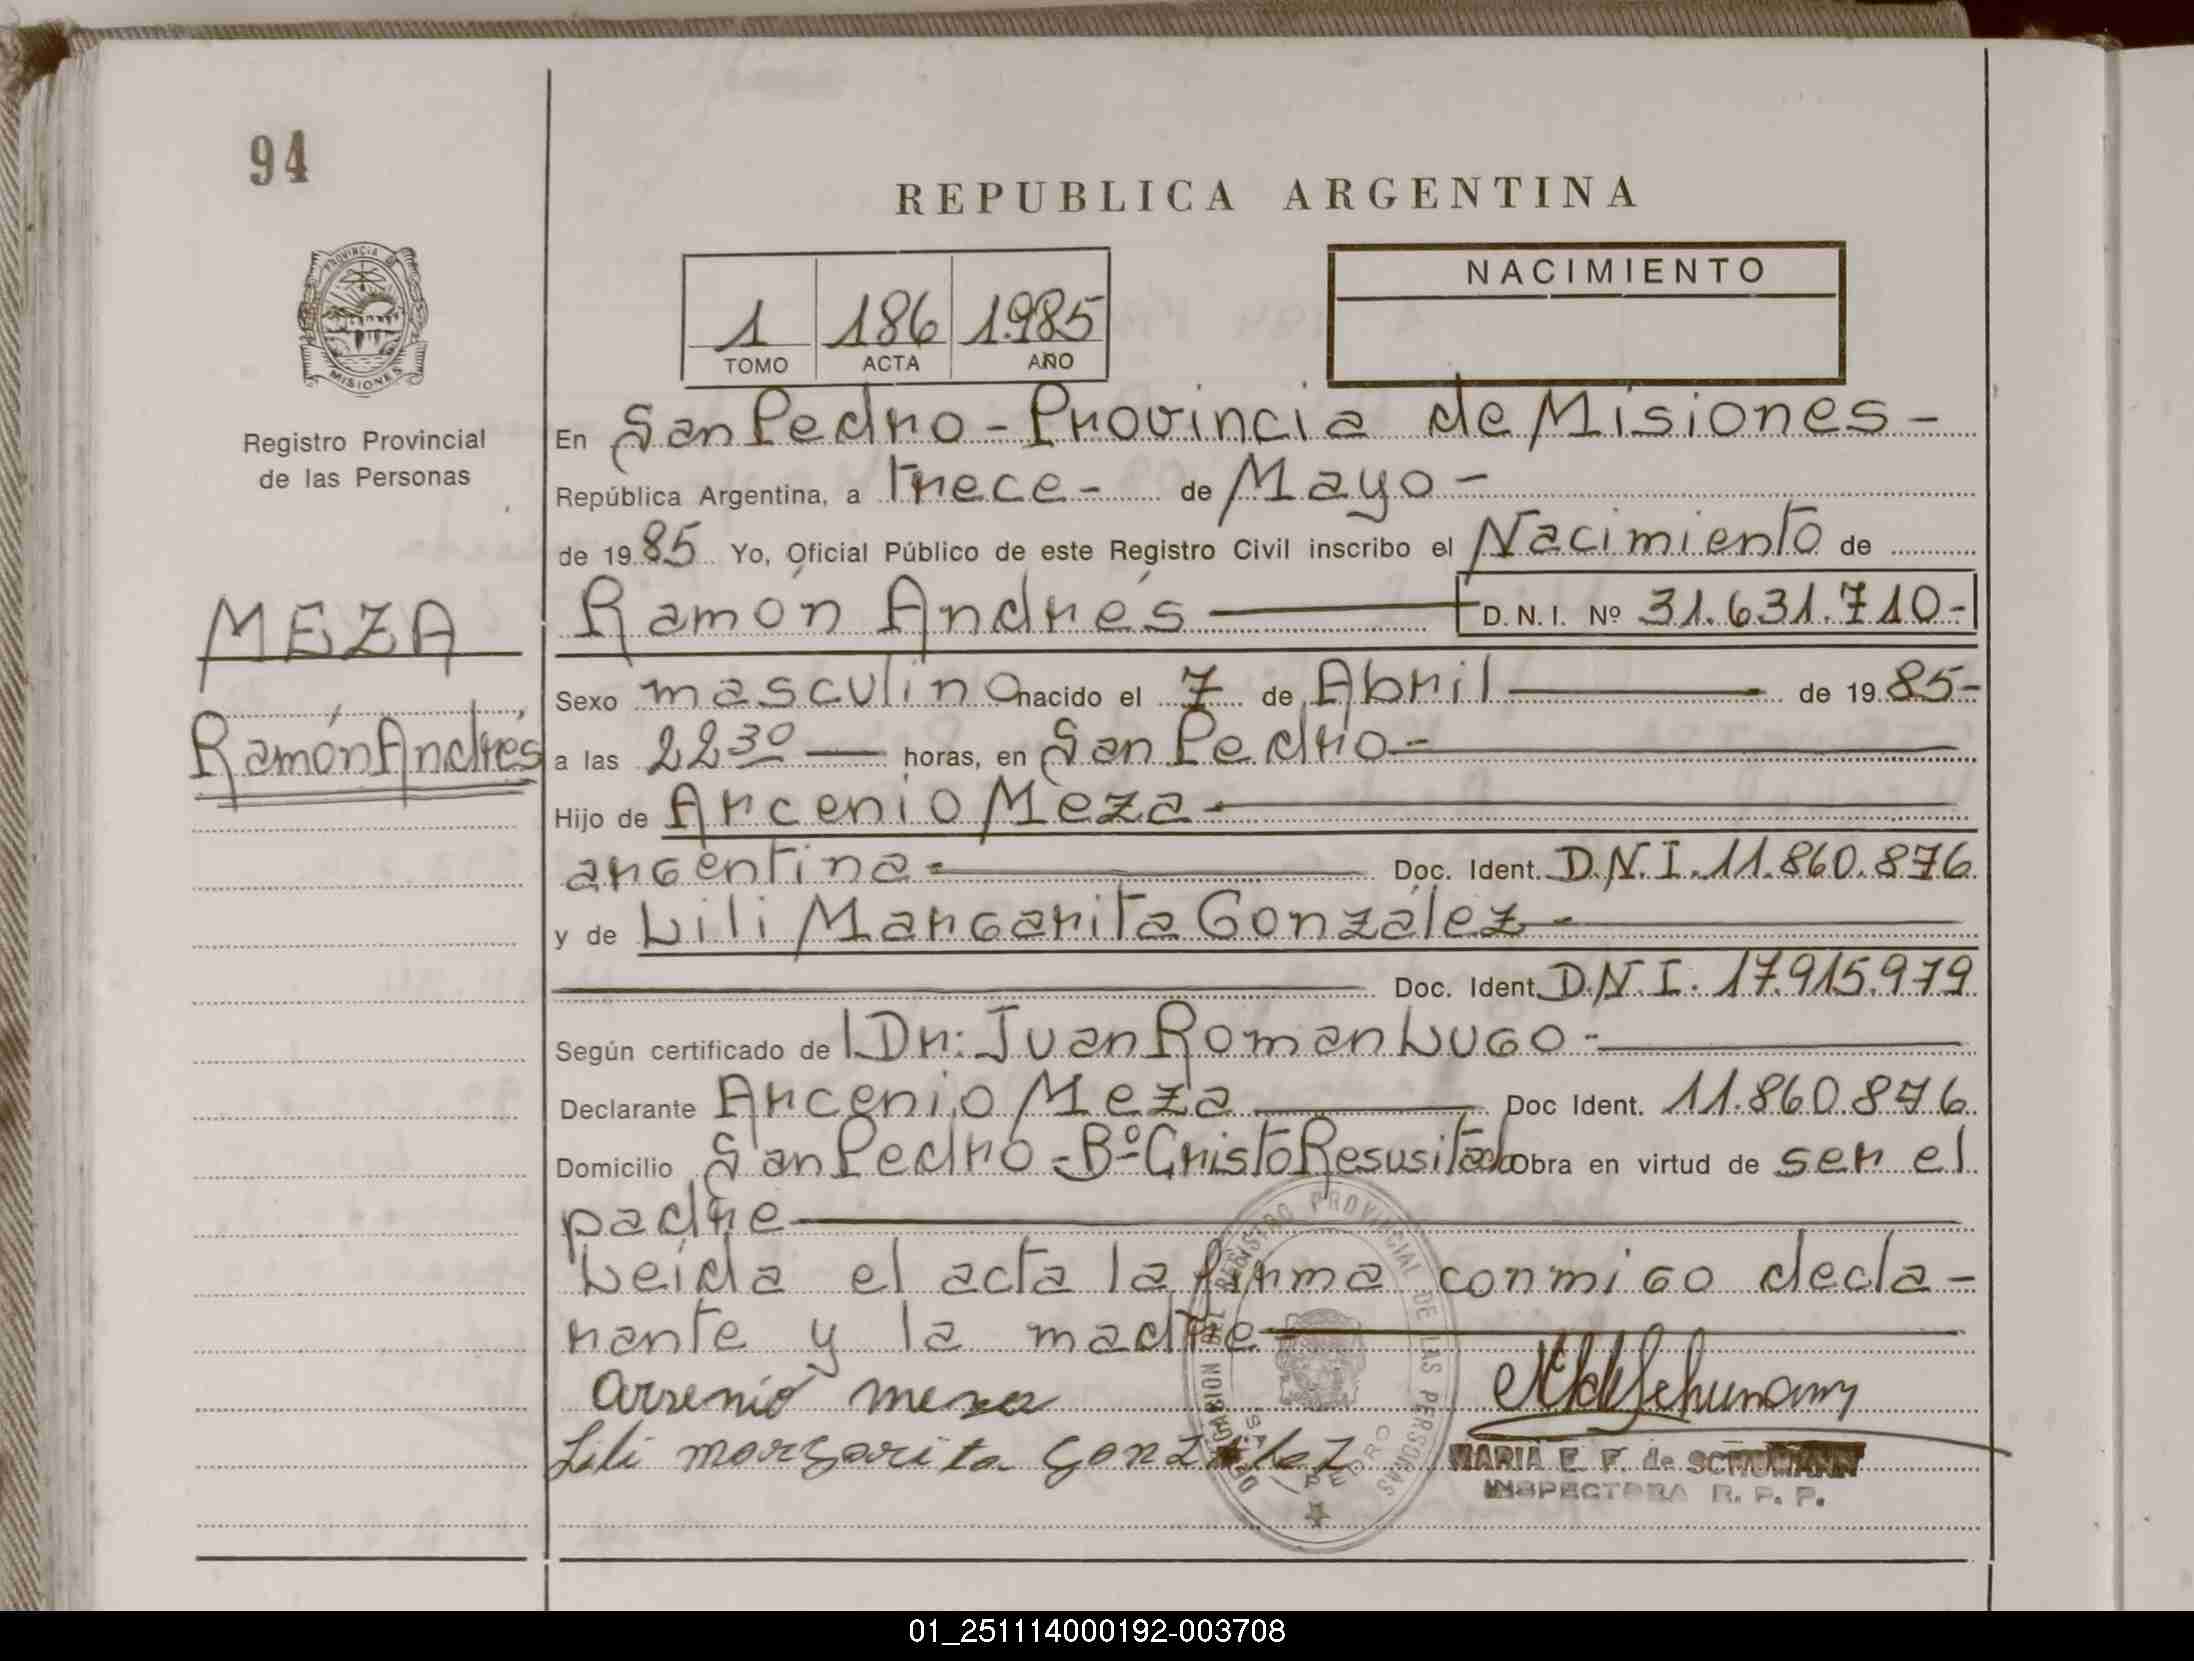 94
REPUBLICA ARGENTINA
PROVINCIA D
MISIONES
Registro Provincial
de las Personas
1 186 1.985
TOMO ACTA AÑO
NACIMIENTO
En San Pedro - Provincia de Misiones -
República Argentina, a trece - de Mayo -
de 19 85 Yo, Oficial Público de este Registro Civil inscribo el Nacimiento de
Ramón Andrés D. N. I. Nº 31.631.710-
MEZA
Ramón Andrés
Sexo masculino nacido el 7 de Abril de 19 85-
a las 22 30 horas, en San Pedro -
Hijo de Arcenio Meza -
argentina - Doc. Ident. D.N.I. 11.860.876
y de Lili Margarita González -
Doc. Ident. D.N.I. 17.915.979
Según certificado de Dr: Juan Roman Lugo -
Declarante Arcenio Meza Doc Ident. 11.860.876
Domicilio San Pedro - Bº Cristo Resusitado Obra en virtud de ser el
padre
Leída el acta la firma conmigo decla-
rante y la madre
arsenio meza
Lili margarita gonzalez
DELEGACION DEL REGISTRO PROVINCIAL DE LAS PERSONAS
SAN PEDRO
MARIA E. F. de SCHUMANN
INSPECTORA R. P. P.
01_251114000192-003708